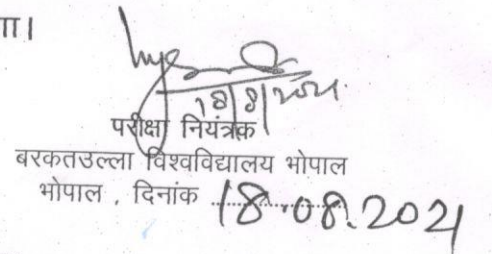 ा।
18/8/2021
परीक्षा नियंत्रक
बरकतउल्ला विश्वविद्यालय भोपाल
भोपाल , दिनांक 18.08.2021